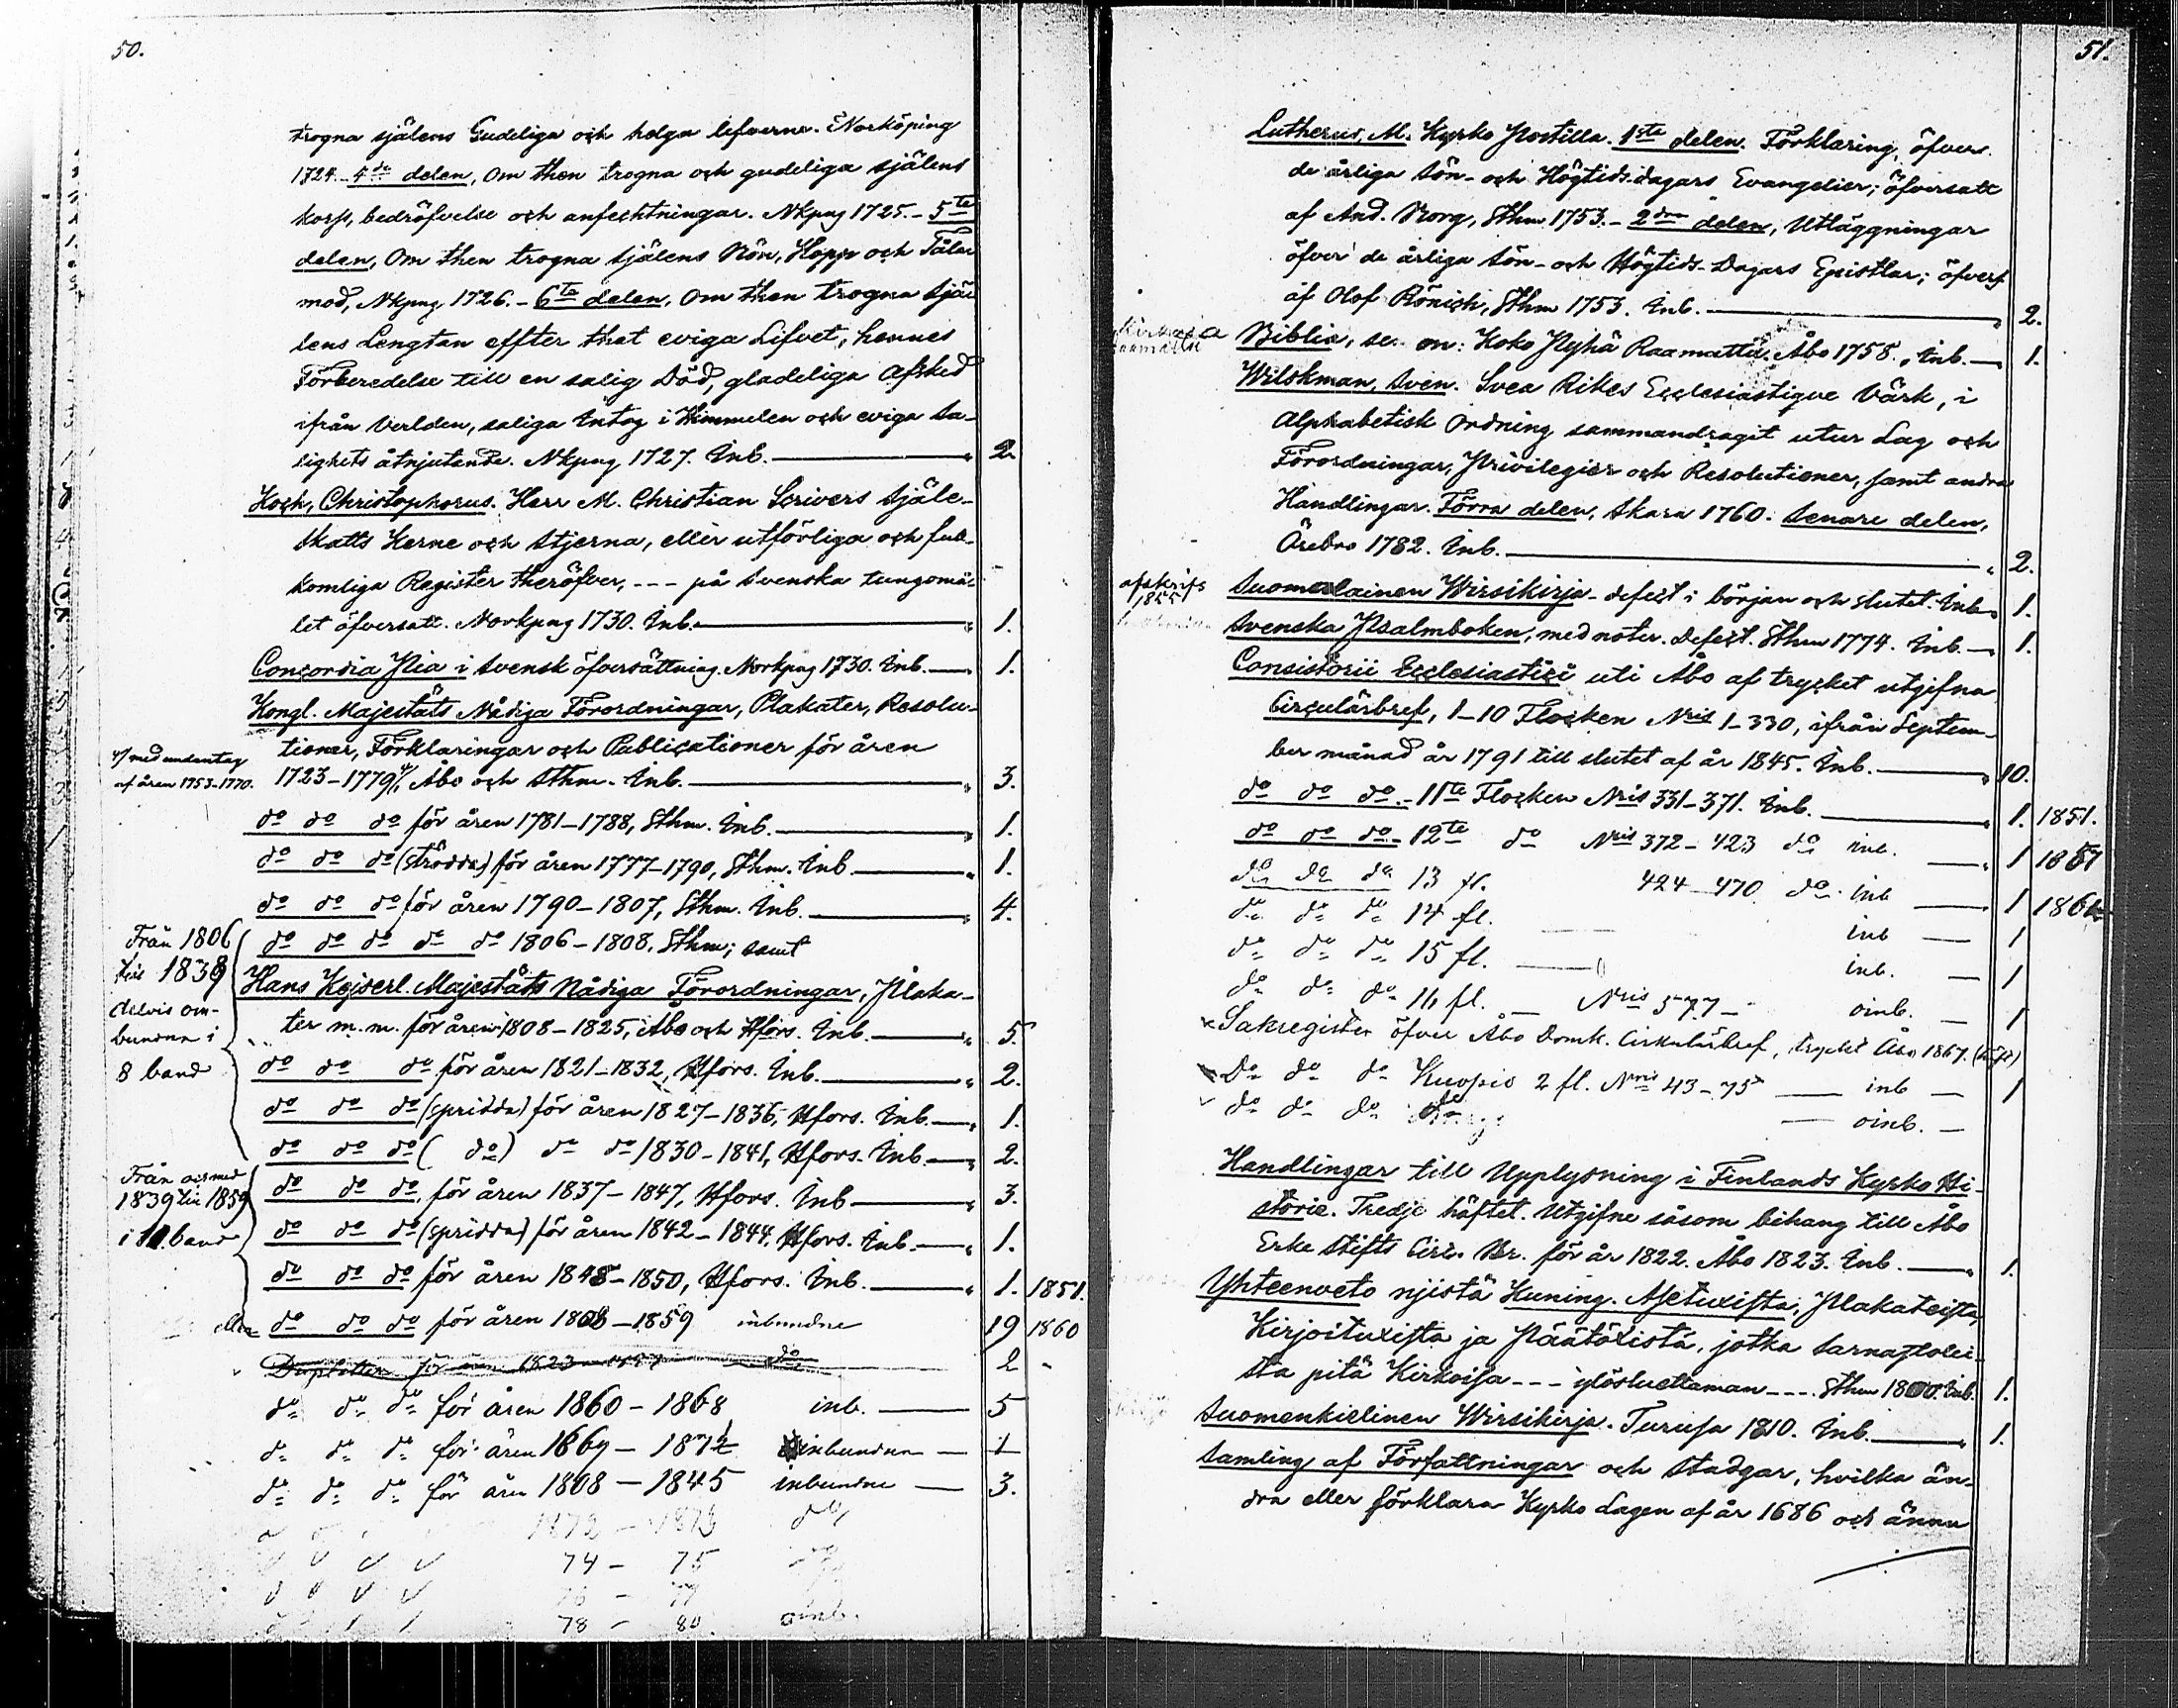 50.
trogna själens Gudeliga och helga lefverne. Norköping
1724. 4de delen, Om then trogna och gudeliga själens
korss, bedröfvelse och anfechtningar. Nkpng 1725. - 5te
delen, Om then trogna själens Bön, Hopp och Tåla-
mod, Nkpng 1726. - 6te delen, Om then trogna Sjä-
lens Lengtan effter thet eviga Lifvet, hennes
Förberedelse till en salig Död, gladeliga Afsked
ifrån Verlden, saliga Intog i Himmelen och eviga Sa-
lighets åtnjutande. Nkpng 1727. Inb. " 2.
Koch, Christophorus. Herr M. Christian Scrivers Själe-
Skatts Kerne och Stjerna, eller utförliga och full-
komliga Register theröfver, - - - på Svenska tungomå-
let öfversatt. Norkpng 1730. Inb. " 1.
Concordia Pia i Svensk öfversättning. Norkpng 1730. Inb. 1.
Kongl. Majestäts Nådiga Förordningar, Plakater, Resolu-
tioner, Förklaringar och Publicationer för åren
*/ med undantag
af åren 1753-1770.
1723-1779*/, Åbo och Sthm. Inb. " 3.
do do do för åren 1781-1788, Sthm. Inb. " 1.
do do do (strödda) för åren 1777-1790, Sthm. Inb. " 1.
do do do för åren 1790-1807, Sthm. Inb. " 4.
Från 1806
till 1838
delvis om-
bundna i
8 band
do do do do do 1806-1808, Sthm; samt
Hans Kejserl. Majestäts Nådiga Förordningar, Plaka-
ter m.m. för åren 1808-1825, Åbo och Hfors. Inb. " 5.
do do do för åren 1821-1832, Hfors. Inb. " 2.
do do do (spridda) för åren 1827-1836, Hfors. Inb. " 1.
do do do ( do ) do do 1830-1841, Hfors. Inb. " 2.
Från och med
1839 till 1859
i 11 band
do do do för åren 1837-1847, Hfors. Inb. " 3.
do do do (spridda) för åren 1842-1844, Hfors. Inb. " 1.
do do do för åren 1848-1850, Hfors. Inb. " 1. 1851.
eller do do do för åren 1808-1859 inbundne 19 1860
Dupletter för åren 1823 do 2 -
do do do för åren 1860-1868 inb. 5
do do do för åren 1869-1872 inbundna 1
do do do för åren 1808-1845 inbundne 3.
1872-1873 do
74 - 75
76 - 77
78 - 80. oinb.
51.
Lutherus, M. Kyrko Postilla. 1sta delen. Förklaring, öfver
de årliga Sön- och Högtids-dagars Evangelier; öfversatt
af And. Norg, Sthm 1753. - 2dra delen, Utläggningar
öfver de årliga Sön- och Högtids-Dagars Epistlar; öfvers.
af Olof Rönich, Sthm 1753. Inb. " 2.
Biblia, se on: Koko Pyhä Raamattu. Åbo 1758. Inb. 1.
Wilskman, Sven. Svea Rikes Ecclesiastique Värk, i
Alphabetisk Ordning sammandragit utur Lag och
Förordningar, Privilegier och Resolutioner, samt andra
Handlingar. Förra delen, Skara 1760. Senare delen,
Örebro 1782. Inb. " 2.
afskrifs
1855
Suomalainen Wirsikirja - defect i början och slutet. Inb. 1.
Svenska Psalmboken, med noter. Defect. Sthm 1774. Inb. 1.
Consistorii Ecclesiastici uti Åbo af trycket utgifna
Circulärbref, 1-10 Flocken Nris 1-330, ifrån Septem-
ber månad år 1791 till slutet af år 1845. Inb. " 10.
do do do - 11te Flocken Nris 331-371. Inb. " 1. 1851.
do do do - 12te do Nris 372-423 do inb. " 1 1857
do do do 13 fl. 424-470. do inb 1
do do do 14 fl. inb 1
do do do 15 fl. inb. 1
do do do 16 fl. - Nris 577- oinb. 1
Sakregister öfver Åbo Domk. Cirkulärbref, tryckt Åbo 1867.
Do do do Kuopio 2 fl. Nris 43-75 inb 1
do do do oinb.
Handlingar till Upplysning i Finlands Kyrko Hi-
storie. Tredje häftet. Utgifne såsom bihang till Åbo
Erke Stifts Circ. Br. för år 1822. Åbo 1823. Inb. " 1.
Yhteenveto njistä Kuning. Asetuxista, Plakateista,
Kirjoituxista ja Päätöxistä, jotka Sarnastolei-
sta pitä Kirkoisa - - - ylösluettaman - - - Sthm 1800. Inb. 1.
Suomenkielinen Wirsikirja. Turusa 1810. Inb. " 1.
Samling af Författningar och Stadgar, hvilka än-
dra eller förklara Kyrko Lagen af år 1686 och ännu